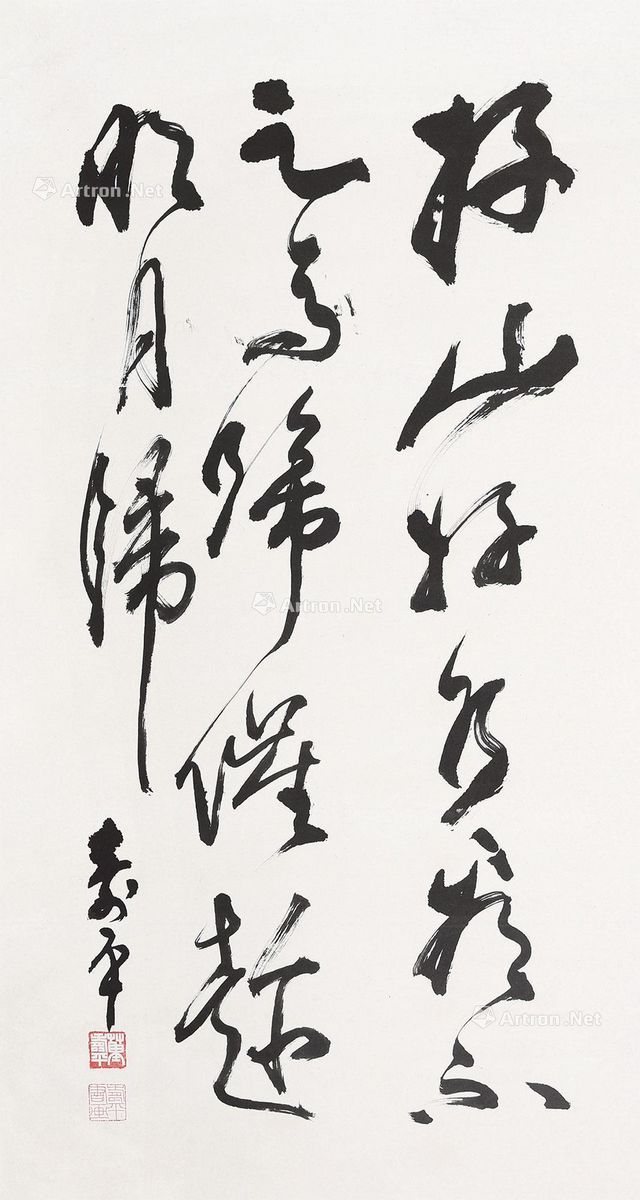 好山好水看不
足馬蹄催趁
明月歸
壽平
Artron.Net
Artron.Net
Artron.Net